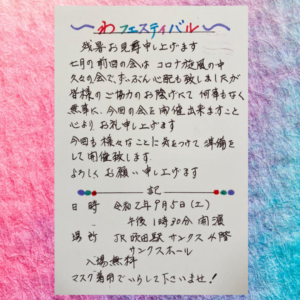 わフェスティバル
残暑お見舞申し上げます
七月の前回の会は コロナ旋風の中
久々の会で、ずいぶん心配も致しましたが
皆様のご協力のお陰にて 何事もなく
無事に、今回の会を開催出来ますこと
心よりお礼申し上げます
今回も様々なことに気をつけて 準備を
して開催致します
よろしくお願い申し上げます
記
日 時 令和2年9月5日(土)
午後1時30分 開演
場 所 JR吹田駅 サンクス4階
サンクスホール
入場無料
マスク着用でいらして下さいませ!